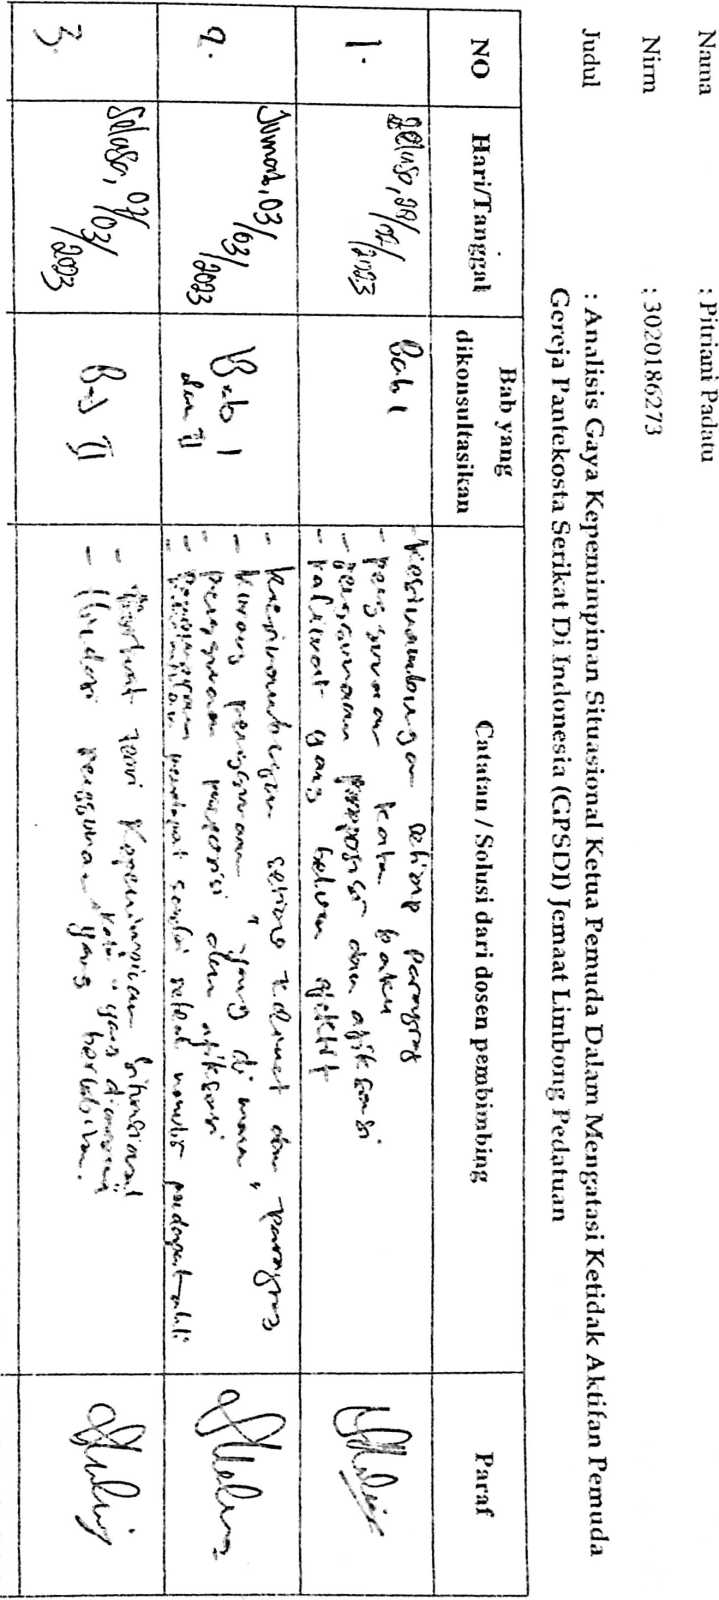 Nama : Pitriani Padatu
Nirm : 3020186273
Judul : Analisis Gaya Kepemimpinan Situasional Ketua Pemuda Dalam Mengatasi Ketidak Aktifan Pemuda
Gereja Pantekosta Serikat Di Indonesia (GPSDI) Jemaat Limbong Pedatuan
NO Hari/Tanggal Bab yang dikonsultasikan Catatan / Solusi dari dosen pembimbing Paraf
1. Selasa, 28/02/2023 Bab I
- Kesinambungan setiap paragraf
- penggunaan kata baku
- penggunaan preposisi dan afiksasi
- kalimat yang belum efektif
2. Jumat, 03/03/2023 Bab I dan II
- Kesinambungan setiap kalimat dan paragraf
- Kurangi penggunaan "yang di mana"
- penggunaan preposisi dan afiksasi
- pendapat setelah pendapat ahli
3. Selasa, 07/03/2023 Bab II
- teori Kepemimpinan Situasional yang
- Hindari penggunaan kata "yang" berlebihan.